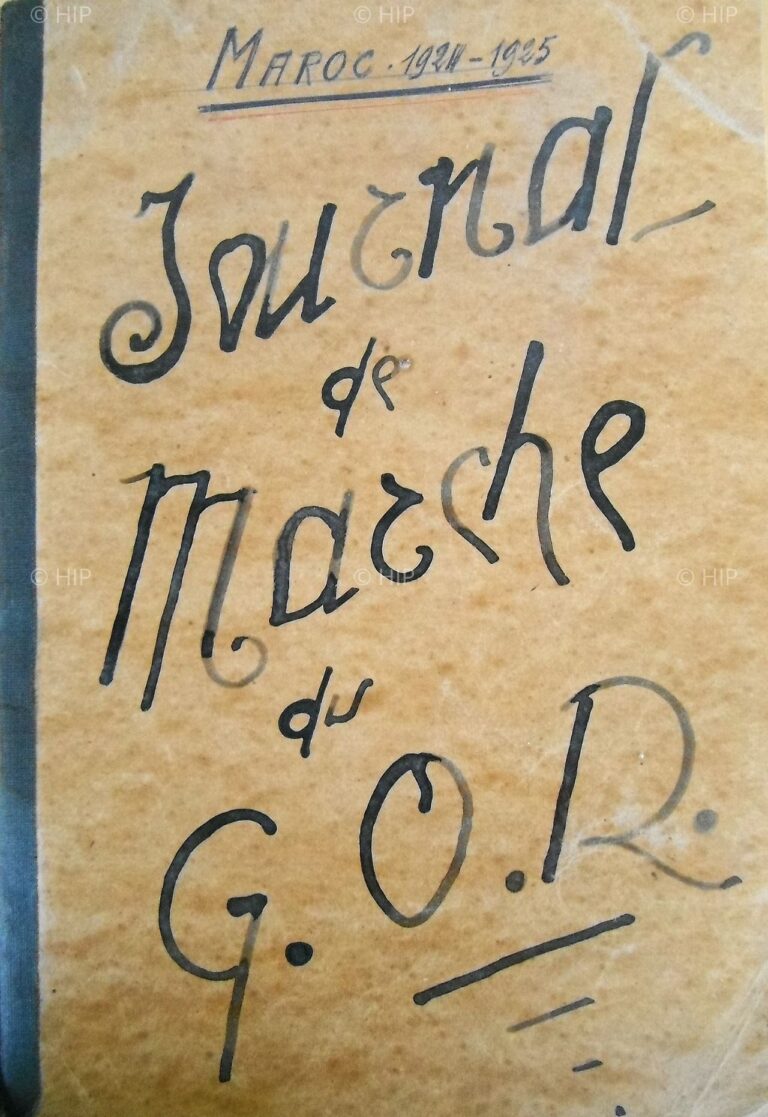 © HIP © HIP © HIP
MAROC. 1924-1925
Journal
de
Marche
© HIP © HIP © HIP
du
G. O. R.